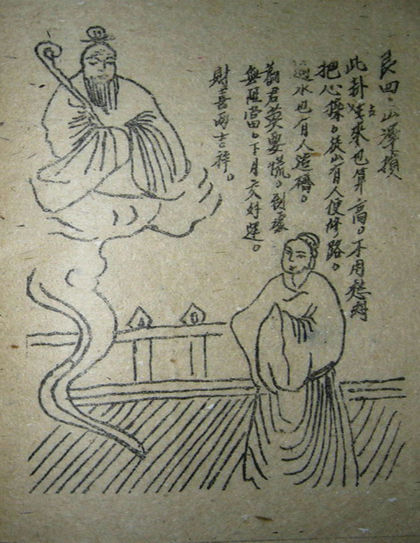 艮四:山澤損
此卦來也算高。不用愁
把心操。山有人使修路。
遇水也有人造橋。
勸君莫要慌。到處
無阻當。下月交好運。
財喜兩吉祥。